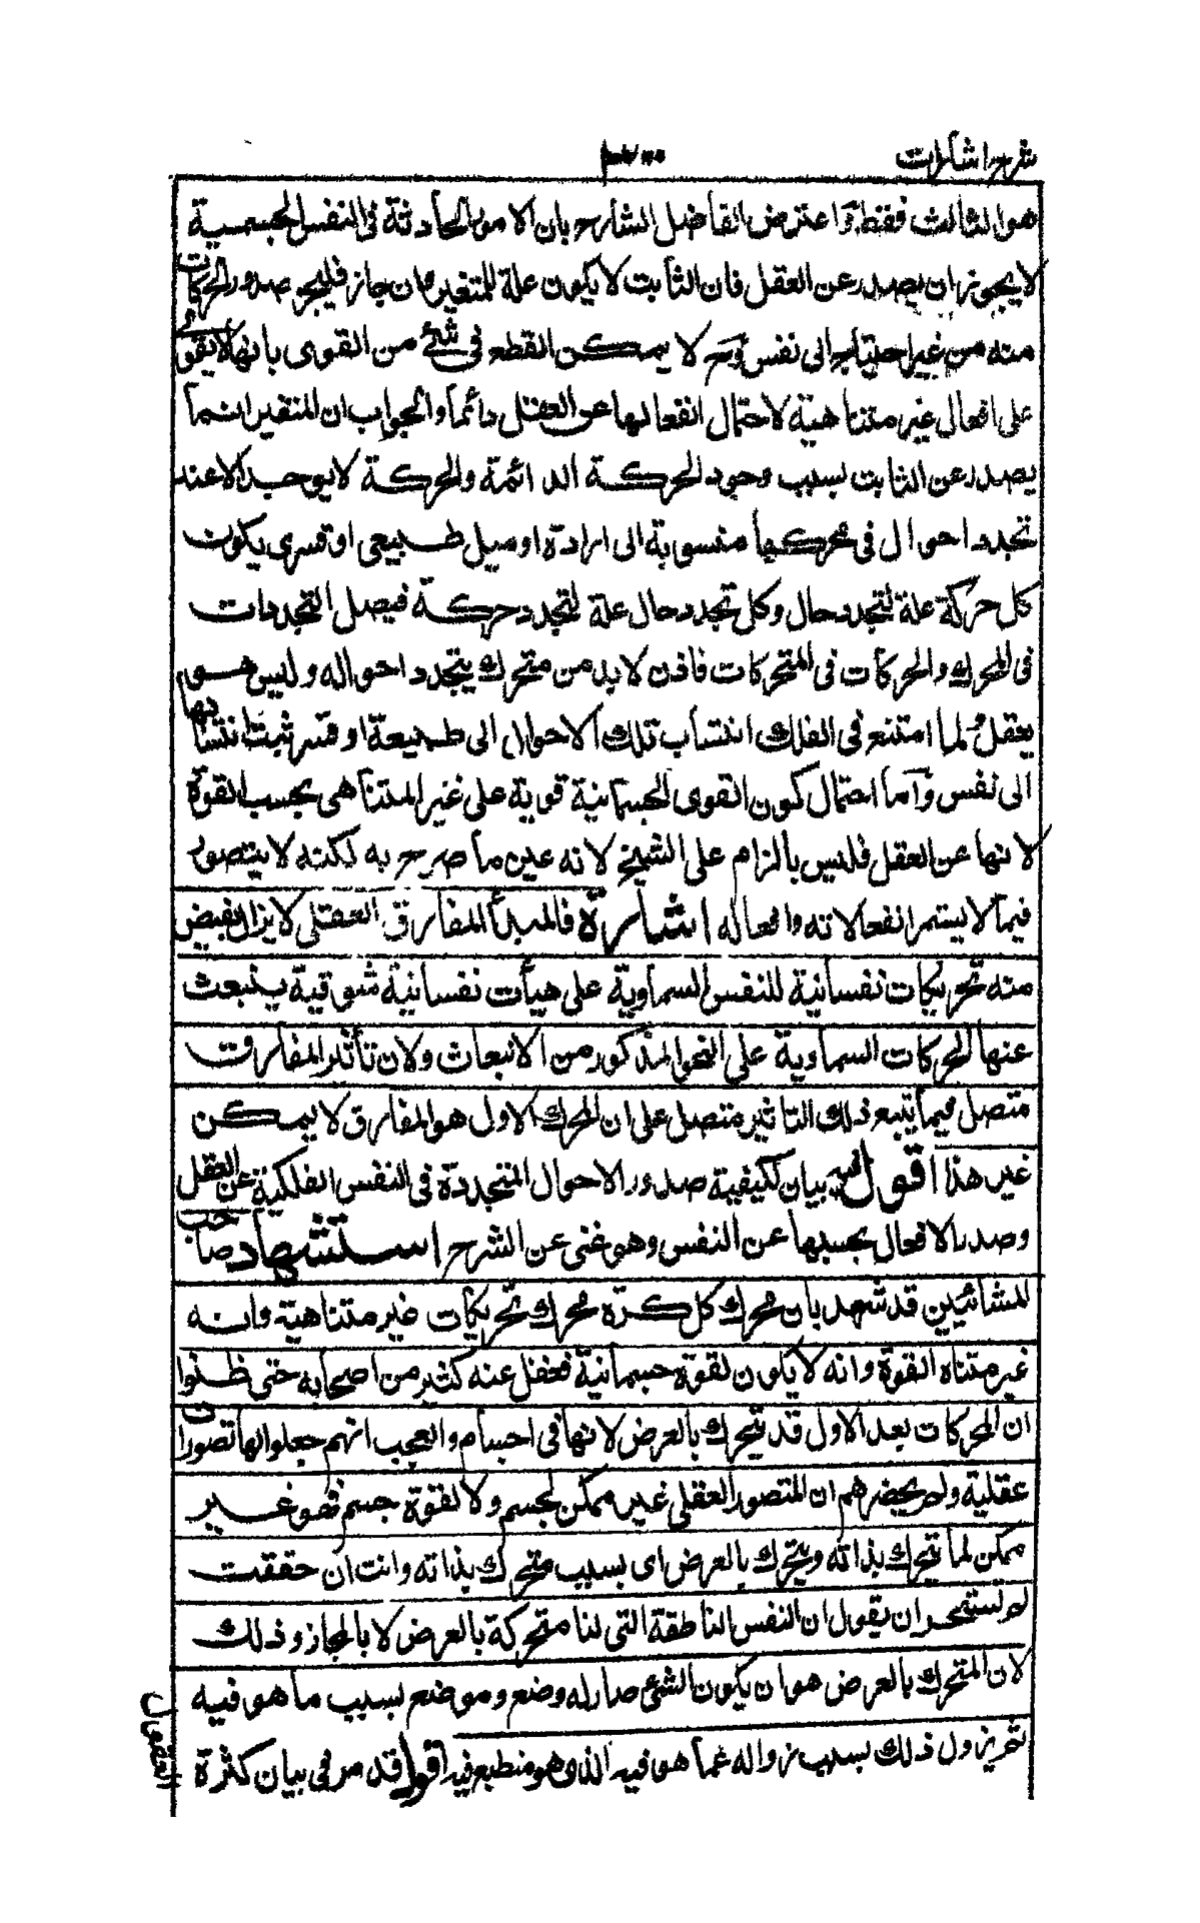 شرح اشارات
هو الثالث فقط واعترض الفاضل الشارح بان الامور الحادثة فى النفس الجسمية
لا يجوز ان يصدر عن العقل فان الثابت لا يكون علة للمتغير وان جاز فليجز صدور الحركات
منه من غير احتياج الى نفس وح لا يمكن القطع فى شئ من القوى بانها لا يقوى
على افعال غير متناهية لاحتمال انفعالها عن العقل دائما والجواب ان المتغير انما
يصدر عن الثابت بسبب وجود الحركة الدائمة والحركة لا يوجد الا عند
تجدد احوال فى محركها منسوبة الى ارادة او ميل طبيعى او قسرى يكون
كل حركة علة لتجدد حال وكل تجدد حال علة لتجدد حركة فيصل التجددات
فى المحرك والحركات فى المتحركات فاذن لا بد من متحرك يتجدد احواله وليس هو
بعقل ولما امتنع فى الفلك انتساب تلك الاحوال الى طبيعة او قسر ثبت انتسابها
الى نفس واما احتمال كون القوى الجسمانية قوية على غير المتناهى بحسب القوة
لانها عن العقل فليس بالزام على الشيخ لانه عين ما صرح به لكنه لا يتصور
فيما لا يستمر انفعالاته وافعاله اشارة فالمبدأ المفارق العقلى لا يزال يفيض
منه تحريكات نفسانية للنفس السماوية على هيآت نفسانية شوقية ينبعث
عنها الحركات السماوية على النحو المذكور من الانبعاث ولان تأثير المفارق
متصل فيما يتبع ذلك التاثير متصل على ان المحرك الاول هو المفارق لا يمكن
غير هذا اقول بيان لكيفية صدور الاحوال المتجددة فى النفس الفلكية عن العقل
وصدر الافعال بحسبها عن النفس وهو غنى عن الشرح استشهاد صاحب
المشائيين قد شهد بان محرك كل كرة محرك تحريكات غير متناهية وانه
غير متناه القوة وانه لا يكون لقوة جسمانية فغفل عنه كثير من اصحابه حتى ظنوا
ان المحركات بعد الاول قد يتحرك بالعرض لانها فى اجسام والعجب انهم جعلوا لها تصورات
عقلية ولم يحضرهم ان المتصور العقلى غير ممكن لجسم ولا لقوة جسم فهو غير
ممكن لما يتحرك بذاته ويتحرك بالعرض اى بسبب متحرك بذاته وانت ان حققت
لم تستجز ان يقول ان النفس الناطقة التى لنا متحركة بالعرض لا بالمجاز وذلك
لان المتحرك بالعرض هو ان يكون الشئ صار له وضع وموضع بسبب ما هو فيه
ثم يزول ذلك بسبب زواله عما هو فيه الذى هو منطبع فيه اقول قد مر فى بيان كثرة
العقول